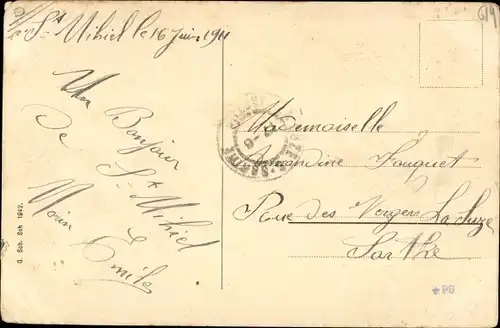 St Mihiel le 16 Juin 1911
Un Bonjour
de St Mihiel
Emile
Mademoiselle
Amandine Fouquet
Rue des Vergers La Suze
Sarthe
SARTHE
G. Sch. Sch 1942.
PG
64